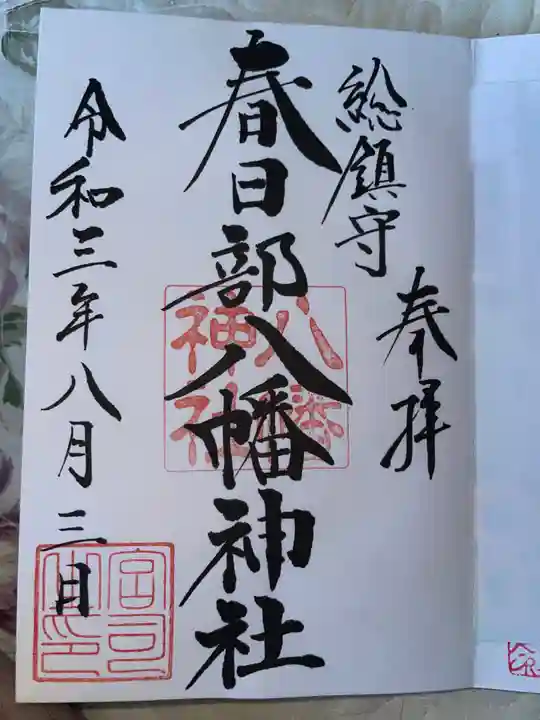 奉拝
総鎮守
春日部八幡神社
八幡神社
令和三年八月三日
宮司之印